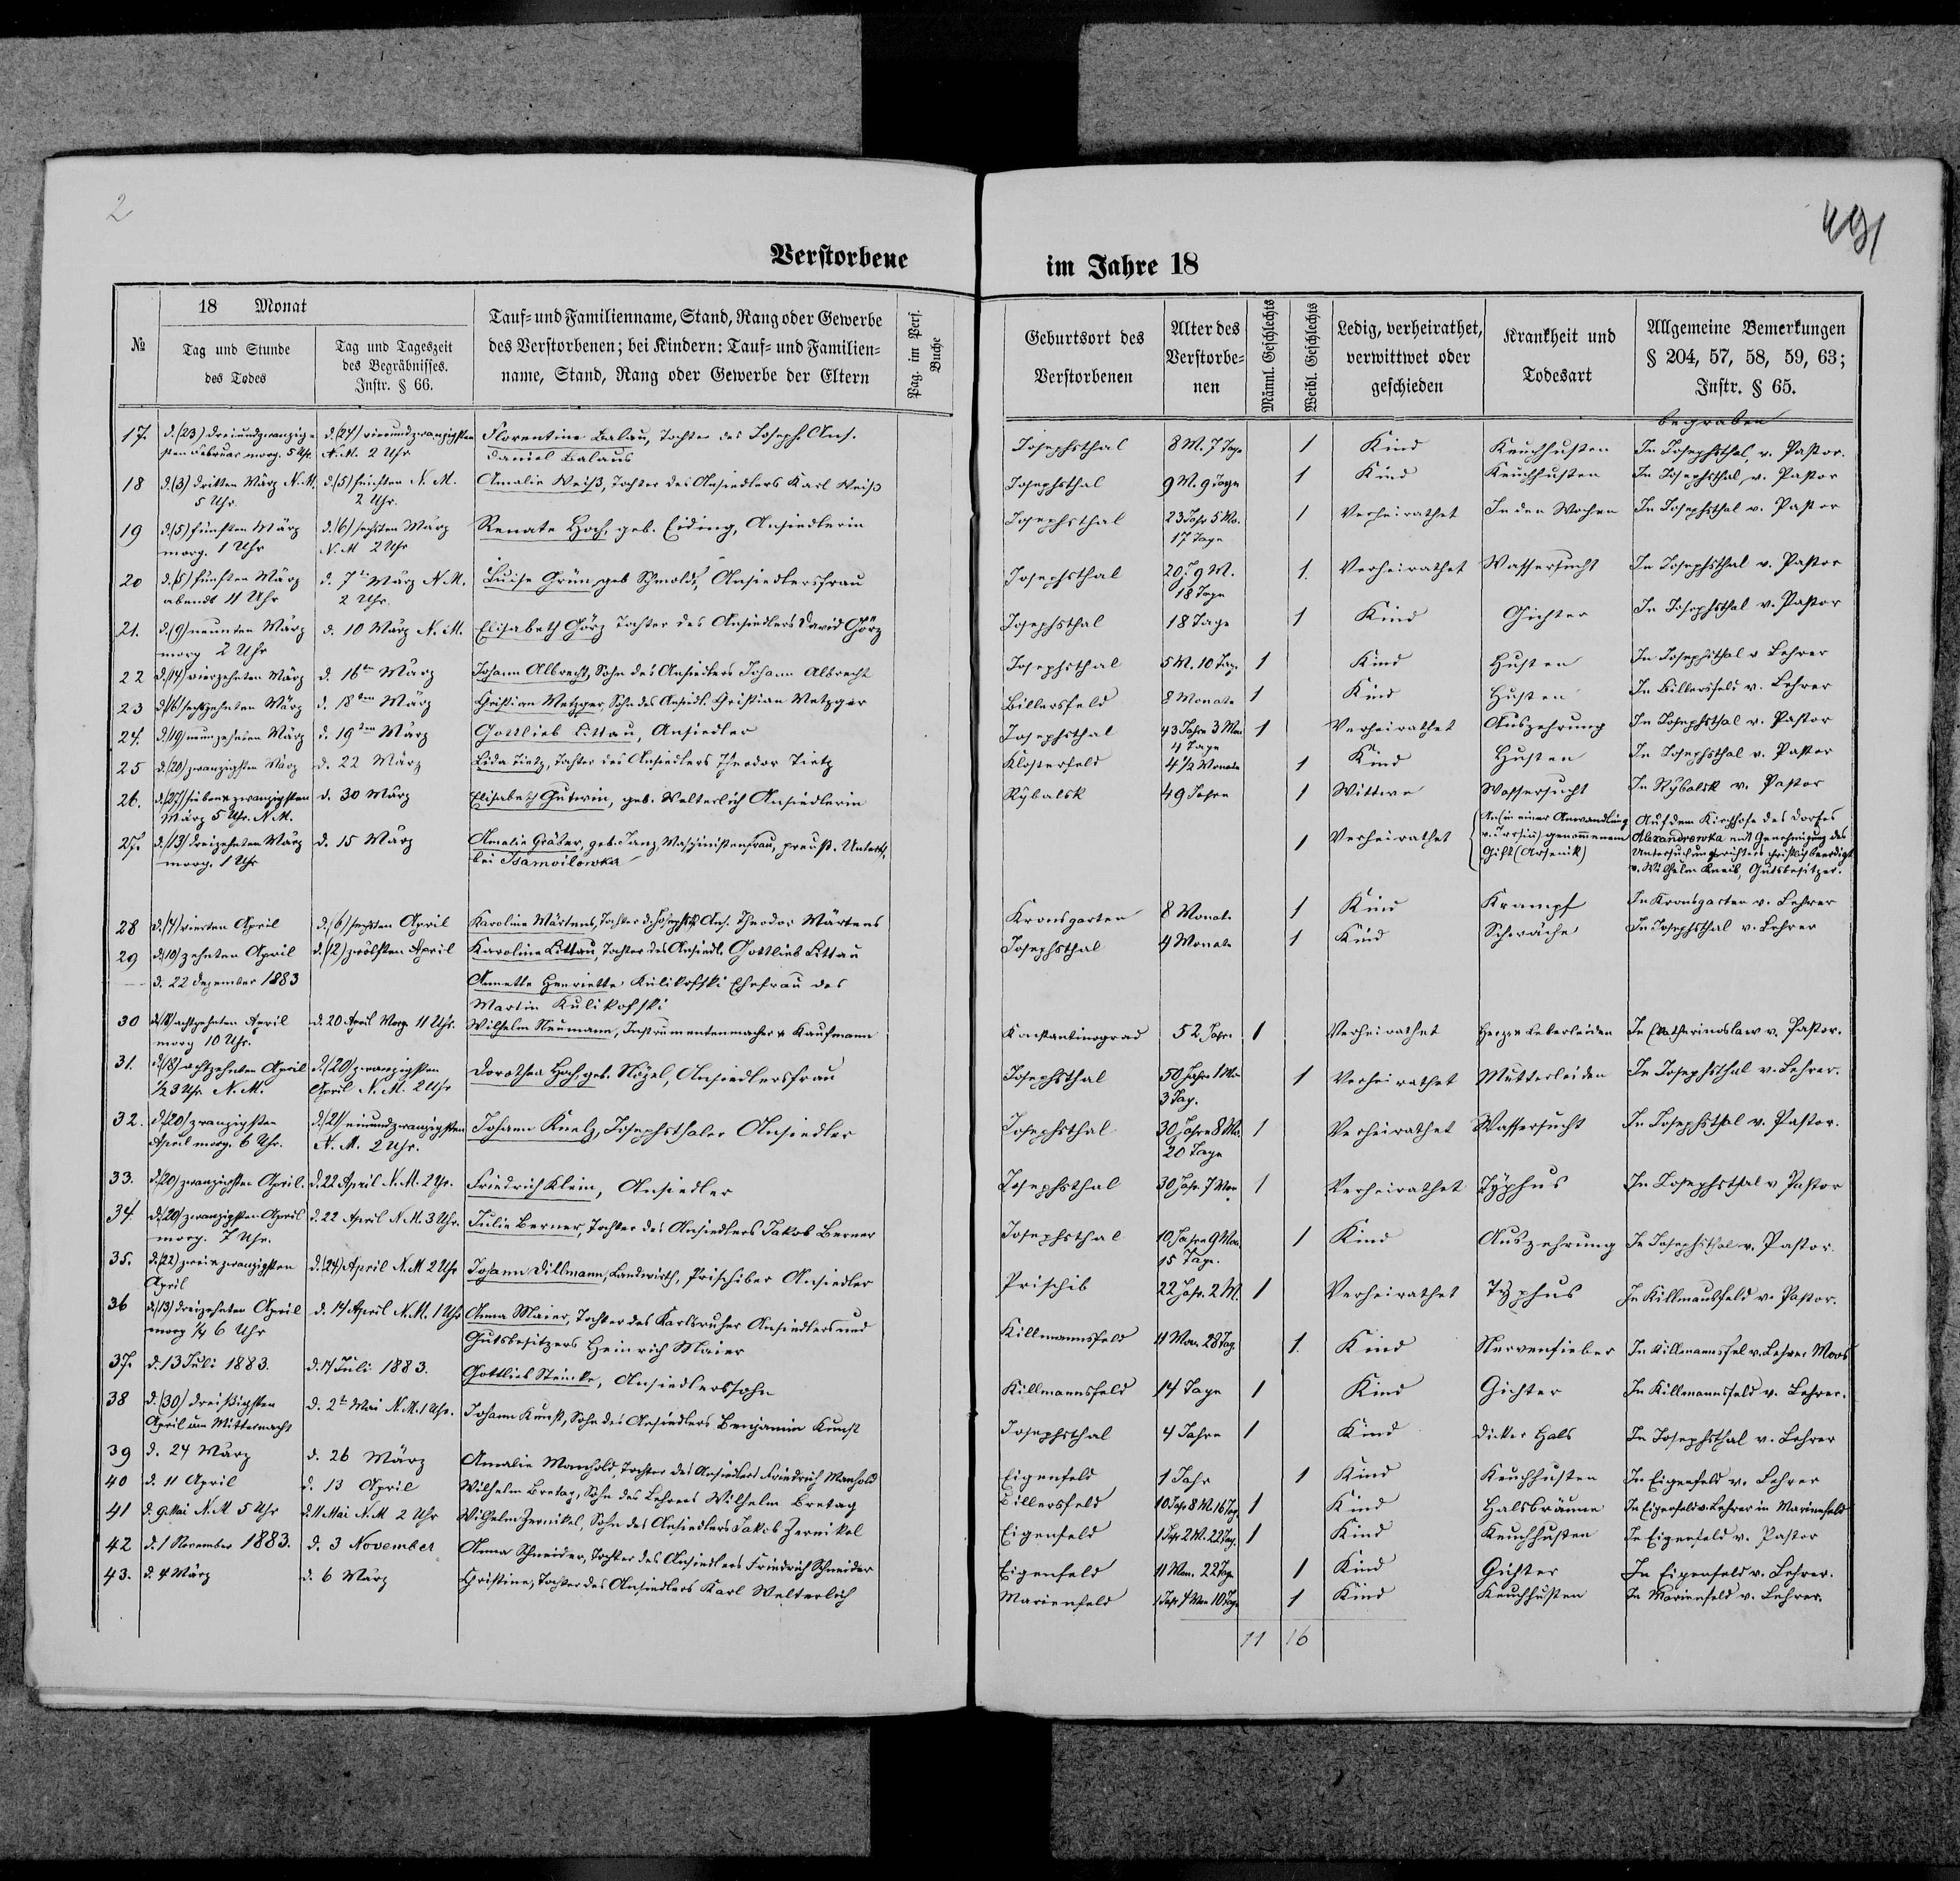 2
491
Verstorbene im Jahre 18
№
18 Monat
Tag und Stunde des Todes
Tag und Tageszeit des Begräbnisses. Instr. § 66.
Tauf- und Familienname, Stand, Rang oder Gewerbe des Verstorbenen; bei Kindern: Tauf- und Familienname, Stand, Rang oder Gewerbe der Eltern
Pag. im Pers. Buche
Geburtsort des Verstorbenen
Alter des Verstorbenen
Männl. Geschlechts
Weibl. Geschlechts
Ledig, verheirathet, verwittwet oder geschieden
Krankheit und Todesart
Allgemeine Bemerkungen § 204, 57, 58, 59, 63; Instr. § 65.
begraben
17. d. (23) dreiundzwanzigsten Februar morg. 5 Uhr. d. (24) vierundzwanzigsten N. M. 2 Uhr Florentine Balau, Tochter des Joseph. Ans. Daniel Balaus Josephsthal 8 M. 7 Tage 1 Kind Keuchhusten In Josephsthal v. Pastor.
18 d. (3) dritten März N. M. 5 Uhr. d. (5) fünften N. M. 2 Uhr. Amalie Weiß, Tochter des Ansiedlers Karl Weiß Josephsthal 9 M. 9 Tage 1 Kind Keuchhusten In Josephsthal v. Pastor
19 d. (5) fünften März morg. 1 Uhr d. (6) sechsten März N. M 2 Uhr Renate Hoch, geb. Eiding, Ansiedlerin Josephsthal 23 Jahr 5 Mo. 17 Tage 1 Verheirathet In den Wochen In Josephsthal v. Pastor
20 d. (5) fünften März abends 11 Uhr d. 7ten März N. M. 2 Uhr. Luise Grün, geb. Schmold, Ansiedlersfrau Josephsthal 20 J. 9 M. 18 Tage 1. Verheirathet Wassersucht In Josephsthal v. Pastor
21. d. (9) neunten März morg 2 Uhr d. 10 März N. M. Elisabeth Görz Tochter des Ansiedlers David Görz Josephsthal 18 Tage 1 Kind Gichter In Josephsthal v. Pastor
22 d. (14) vierzehnten März d. 16ten März Johann Albrecht, Sohn des Ansiedlers Johann Albrecht Josephsthal 5 M. 10 Tage 1 Kind Husten In Josephsthal v Lehrer
23 d. (16) sechzehnten März d. 18ten März Christian Metzger, Sohn des Ansiedl. Christian Metzger Billersfeld 8 Monate 1 Kind Husten In Billersfeld v. Lehrer
24. d. (19) neunzehnten März d. 19ten März Gottlieb Littau, Ansiedler Josephsthal 43 Jahre 3 Mon 4 Tage 1 Verheirathet Auszehrung In Josephsthal v. Pastor
25 d. (20) zwanzigsten März d. 22 März Lida Tietz, Tochter des Ansiedlers Theodor Tietz Klosterfeld 4 1/2 Monate 1 Kind Husten In Josephsthal v. Pastor
26. d. (27) sieben u. zwanzigsten März 5 Uhr. N. M. d. 30 März Elisabeth Gutwin, geb. Welterlich Ansiedlerin Rybalsk 49 Jahre 1 Wittwe Wassersucht In Rybalsk v. Pastor
27. d. (13) dreizehnten März morg. 1 Uhr d. 15 März Amalie Gräber, geb. Janz, Maschinistenfrau, preuß. Unterth. bei Isamoilowka 1 Verheirathet An (in einer Anwandlung v. Irrsinn) genommenem Gift (Arsenik) Auf dem Kirchhofe des Dorfes Alexandrowka mit Genehmigung des Untersuchungsrichters christlich beerdigt v. Wilhelm Kneib, Gutsbesitzer.
28 d. (4) vierten April d. (6) sechsten April Karoline Märtens, Tochter d. Josephsth. Ans. Theodor Märtens Kronsgarten 8 Monate 1 Kind Krampf In Kronsgarten v. Lehrer
29 d. (10) zehnten April d. (12) zwölften April Karoline Littau, Tochter des Ansiedl. Gottlieb Littau Josephsthal 4 Monate 1 Kind Schwäche In Josephsthal v. Lehrer
d. 22 Dezember 1883 Annette Henriette Kulikofski Ehefrau des Martin Kulikofski
30 d. (18) achtzehnten April morg 10 Uhr. d. 20 April Morg. 11 Uhr. Wilhelm Neumann, Instrumentenmacher u Kaufmann Konstantinograd 52 Jahre 1 Verheirathet Herz u Leberleiden In Ekatherinoslaw v. Pastor.
31. d. (18) achtzehnten April 1/2 3 Uhr N. M. d. (20) zwanzigsten April N. M. 2 Uhr Dorothea Hoch, geb. Nögel, Ansiedlersfrau Josephsthal 50 Jahre 1 Mo 3 Tag. 1 Verheirathet Mutterleiden In Josephsthal v. Lehrer.
32. d. (20) zwanzigsten April morg. 6 Uhr. d. (21) einundzwanzigsten N. M. 2 Uhr. Johann Knelz, Josephsthaler Ansiedler Josephsthal 30 Jahre 8 Mo. 20 Tage 1 Verheirathet Wassersucht In Josephsthal v. Pastor.
33. d. (20) zwanzigsten April. d. 22 April N. M. 2 Uhr. Friedrich Klein, Ansiedler Josephsthal 30 Jahr. 7 Mon 1 Verheirathet Typhus In Josephsthal v Pastor
34. d. (20) zwanzigsten April morg. 7 Uhr. d. 22 April N. M. 3 Uhr. Julie Berner, Tochter des Ansiedlers Jakob Berner Josephsthal 10 Jahre 9 Mon. 15 Tage. 1 Kind Auszehrung In Josephsthal v. Pastor.
35. d. (22) zwei u zwanzigsten April d. (24) April N. M 2 Uhr Johann Dillmann, Landwirth, Prischiber Ansiedler Prischib 22 Jahr. 2 M. 1 Verheirathet Typhus In Killmannsfeld v. Pastor.
36 d. (13) dreizehnten April morg 1/4 6 Uhr d. 14 April N. M. 1 Uhr Anna Maier, Tochter des Karlsruher Ansiedlers und Gutsbesitzers Heinrich Maier Killmannsfeld 11 Mon. 28 Tag. 1. Kind Nervenfieber In Killmannsfel v. Lehrer Moos
37. d. 13 Juli 1883. d. 14 Juli 1883. Gottlieb Steinke, Ansiedlerssohn Killmannsfeld 14 Tage 1 Kind Gichter In Killmannsfeld v. Lehrer.
38 d. (30) dreißigsten April um Mitternacht d. 2ten Mai N. M. 1 Uhr. Johann Kunst, Sohn des Ansiedlers Benjamin Kunst Josephsthal 4 Jahre 1 Kind Dicker Hals In Josephsthal v. Lehrer
39 d. 24 März d. 26 März Amalie Manhold, Tochter des Ansiedlers Friedrich Manhold Eigenfeld 1 Jahr 1 Kind Keuchhusten In Eigenfeld v. Lehrer
40 d. 11 April d. 13 April Wilhelm Bretag, Sohn des Lehrers Wilhelm Bretag Billersfeld 10 Jahr 8 M. 16 Tag. 1 Kind Halsbräune In Eigenfeld v. Lehrer in Marienfeld
41 d. 9 Mai N. M 5 Uhr d. 11 Mai N. M 2 Uhr Wilhelm Zernikel, Sohn des Ansiedlers Jakob Zernikel Eigenfeld 1 Jahr 2 M. 22 Tag. 1 Kind Keuchhusten In Eigenfeld v. Pastor
42 d. 1 November 1883. d. 3 November Anna Schneider, Tochter des Ansiedlers Friedrich Schneider Eigenfeld 11 Mon. 22 Tage 1 Kind Gichter In Eigenfeld v. Lehrer.
43. d. 4 März d. 6 März Christine, Tochter des Ansiedlers Karl Welterlich Marienfeld 1 Jahr 4 Mon 10 Tage 1 Kind Keuchhusten In Marienfeld v. Lehrer.
11 16